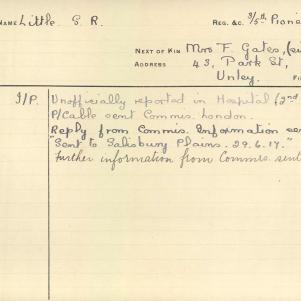 NAME Little S. R. REG. &C. 3/5th. Pione
NEXT OF KIN Mrs F. Gates, (si
ADDRESS 43, Park St,
Unley.
I/P. Unofficially reported in Hospital (2nd
P/Cable sent Commis. London.
"Reply from Commis. Information
"Sent to Salisbury Plains. 29.6.17."
Further information from Commis. sent